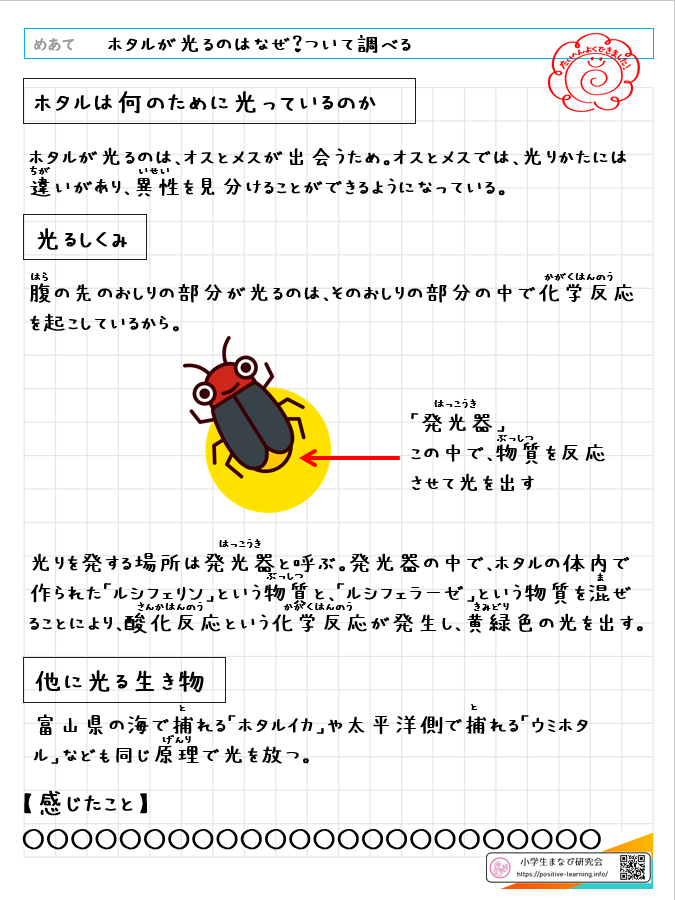 めあて ホタルが光るのはなぜ?ついて調べる
たいへんよくできました!
ホタルは何のために光っているのか
ホタルが光るのは、オスとメスが出会うため。オスとメスでは、光りかたには
ちが いせい
違いがあり、異性を見分けることができるようになっている。
光るしくみ
はら かがくはんのう
腹の先のおしりの部分が光るのは、そのおしりの部分の中で化学反応
を起こしているから。
はっこうき
「発光器」
ぶっしつ
この中で、物質を反応
させて光を出す
はっこうき
光りを発する場所は発光器と呼ぶ。発光器の中で、ホタルの体内で
ぶっしつ ま
作られた「ルシフェリン」という物質と、「ルシフェラーゼ」という物質を混ぜ
さんかはんのう かがくはんのう きみどり
ることにより、酸化反応という化学反応が発生し、黄緑色の光を出す。
他に光る生き物
と と
富山県の海で捕れる「ホタルイカ」や太平洋側で捕れる「ウミホタ
げんり
ル」なども同じ原理で光を放つ。
【感じたこと】
〇〇〇〇〇〇〇〇〇〇〇〇〇〇〇〇〇〇〇〇〇〇〇〇
小学生まなび研究会
https://positive-learning.info/